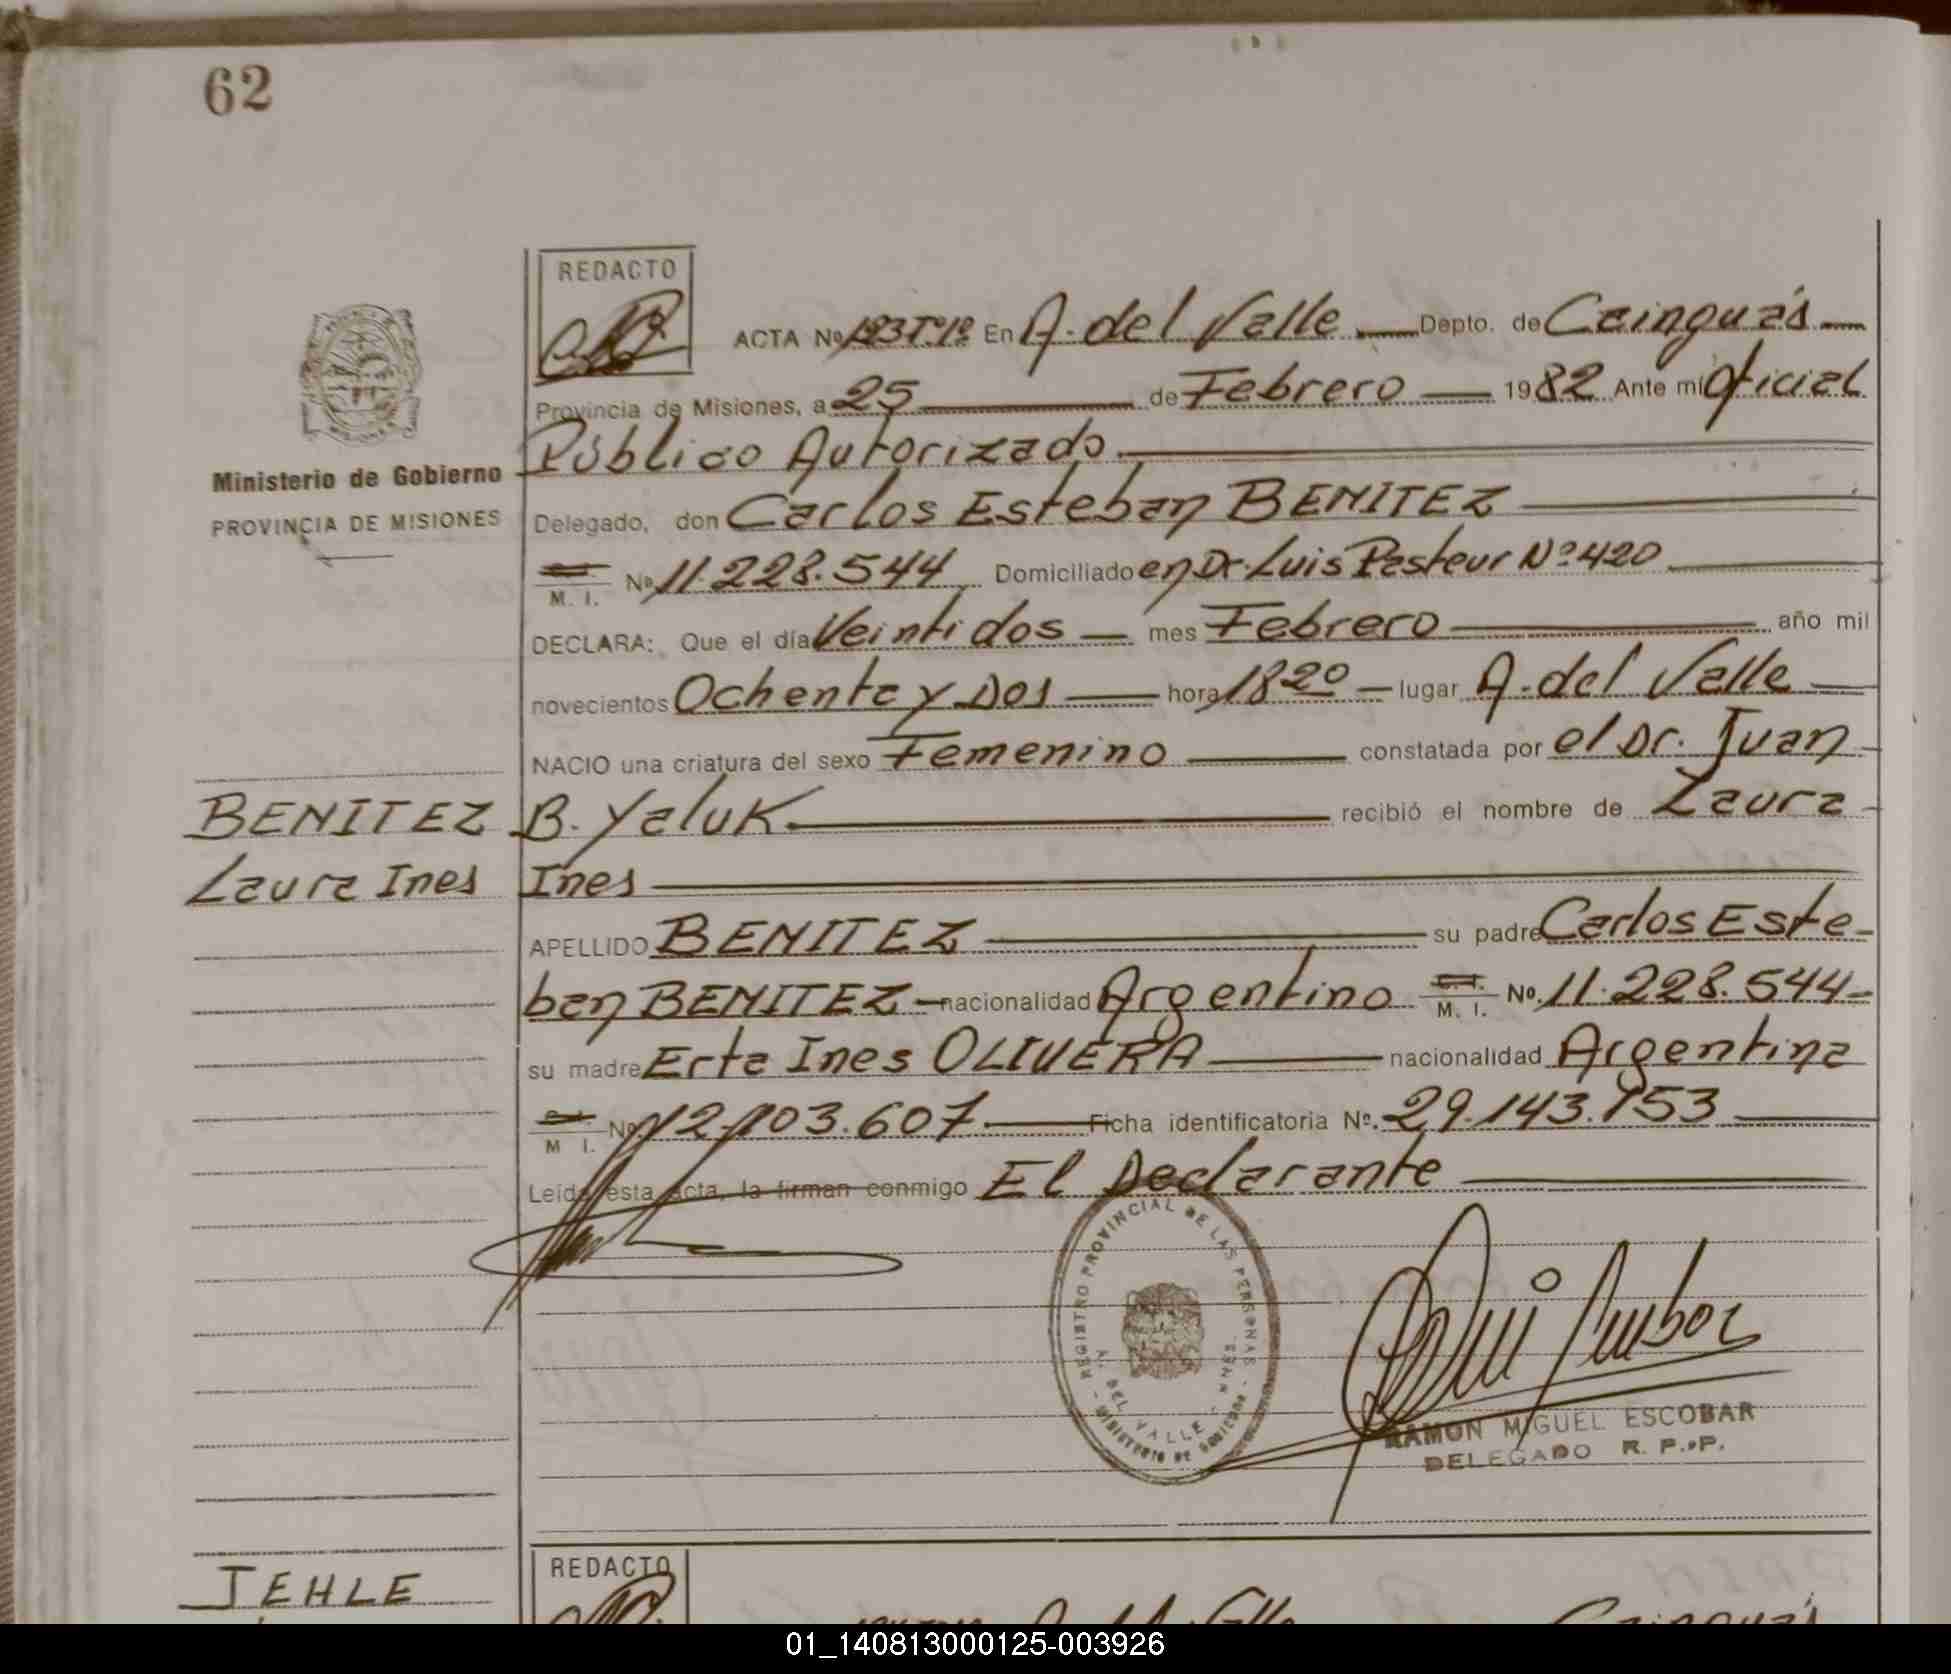 62
REDACTO
ACTA Nº 123 Tº 1º En A. del Valle Depto. de Cainguás
Provincia de Misiones, a 25 de Febrero 1982 Ante mi Oficial
Público Autorizado
Ministerio de Gobierno
PROVINCIA DE MISIONES
Delegado, don Carlos Esteban BENITEZ
M. I. Nº 11.228.544 Domiciliado en Dr. Luis Pasteur Nº 420
DECLARA: Que el día Veintidos mes Febrero año mil
novecientos Ochenta y Dos hora 18 20 lugar A. del Valle
NACIO una criatura del sexo Femenino constatada por el Dr. Juan
BENITEZ
B. Yaluk recibió el nombre de Laura
Laura Ines
Ines
APELLIDO BENITEZ su padre Carlos Este-
ban BENITEZ nacionalidad Argentino M. I. Nº. 11.228.544
su madre Erta Ines OLIVERA nacionalidad Argentina
M I. Nº 12.103.607 Ficha identificatoria Nº. 29.143.153
Leída esta acta, la firman conmigo El Declarante
REGISTRO PROVINCIAL DE LAS PERSONAS
A. DEL VALLE - MNES.
MINISTERIO DE GOBIERNO
RAMON MIGUEL ESCOBAR
DELEGADO R. P. P.
REDACTO
JEHLE
A. del Valle Cainguás
01_140813000125-003926